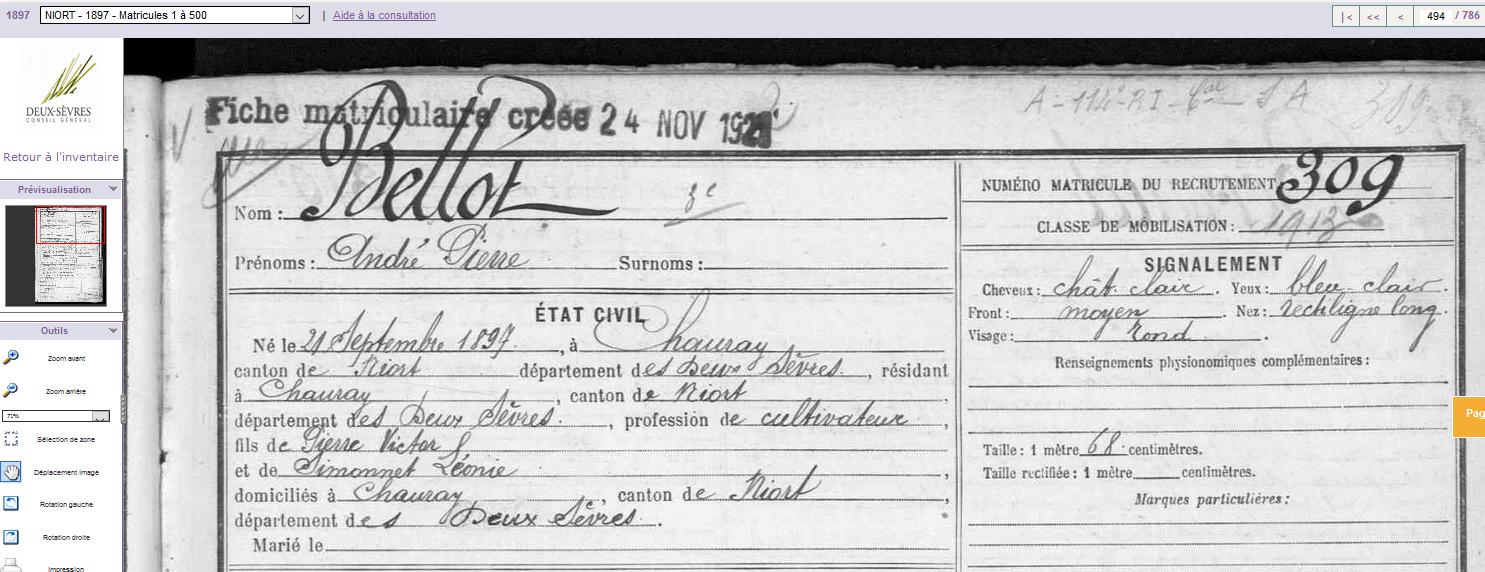 1897 NIORT - 1897 - Matricules 1 à 500 | Aide à la consultation |< << < 494 / 786
DEUX-SÈVRES
CONSEIL GÉNÉRAL
Retour à l'inventaire
Prévisualisation
Outils
Zoom avant
Zoom arrière
71%
Sélection de zone
Déplacement image
Rotation gauche
Rotation droite
Impression
Pag
A - 114e RI - S A 309
Fiche matriculaire créée 24 NOV 192
Nom : Bellot 3e
Prénoms : André Pierre Surnoms :
ÉTAT CIVIL
Né le 21 Septembre 1897, à Chauray
canton de Niort département des Deux Sèvres, résidant
à Chauray, canton de Niort,
département des Deux Sèvres, profession de cultivateur,
fils de Pierre Victor
et de Simonnet Léonie,
domiciliés à Chauray, canton de Niort,
département des Deux Sèvres.
Marié le
NUMÉRO MATRICULE DU RECRUTEMENT 309
CLASSE DE MOBILISATION : 1913
SIGNALEMENT
Cheveux : chât. clair. Yeux : bleu clair.
Front : moyen Nez : rectiligne long.
Visage : rond.
Renseignements physionomiques complémentaires :
Taille : 1 mètre 68 centimètres.
Taille rectifiée : 1 mètre centimètres.
Marques particulières :